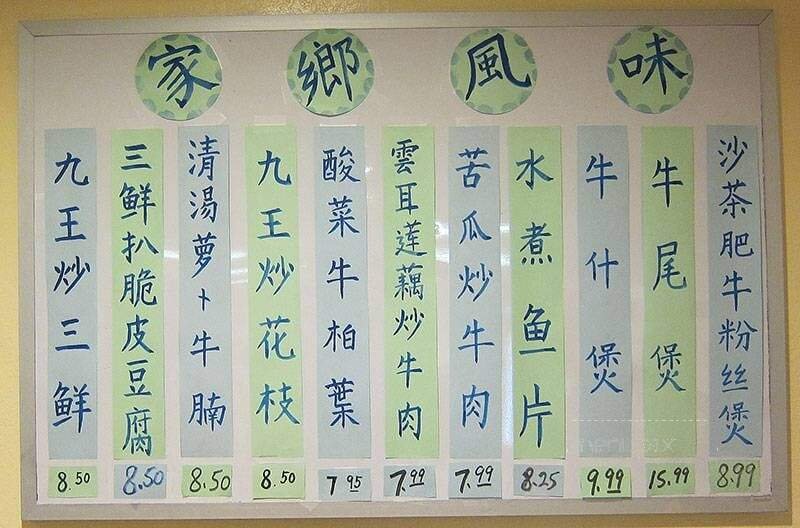 家鄉風味
九王炒三鲜
8.50
三鲜扒脆皮豆腐
8.50
清湯萝卜牛腩
8.50
九王炒花枝
8.50
酸菜牛柏葉
7.95
雲耳莲藕炒牛肉
7.99
苦瓜炒牛肉
7.99
水煮鱼片
8.25
牛什煲
9.99
牛尾煲
15.99
沙茶肥牛粉丝煲
8.99